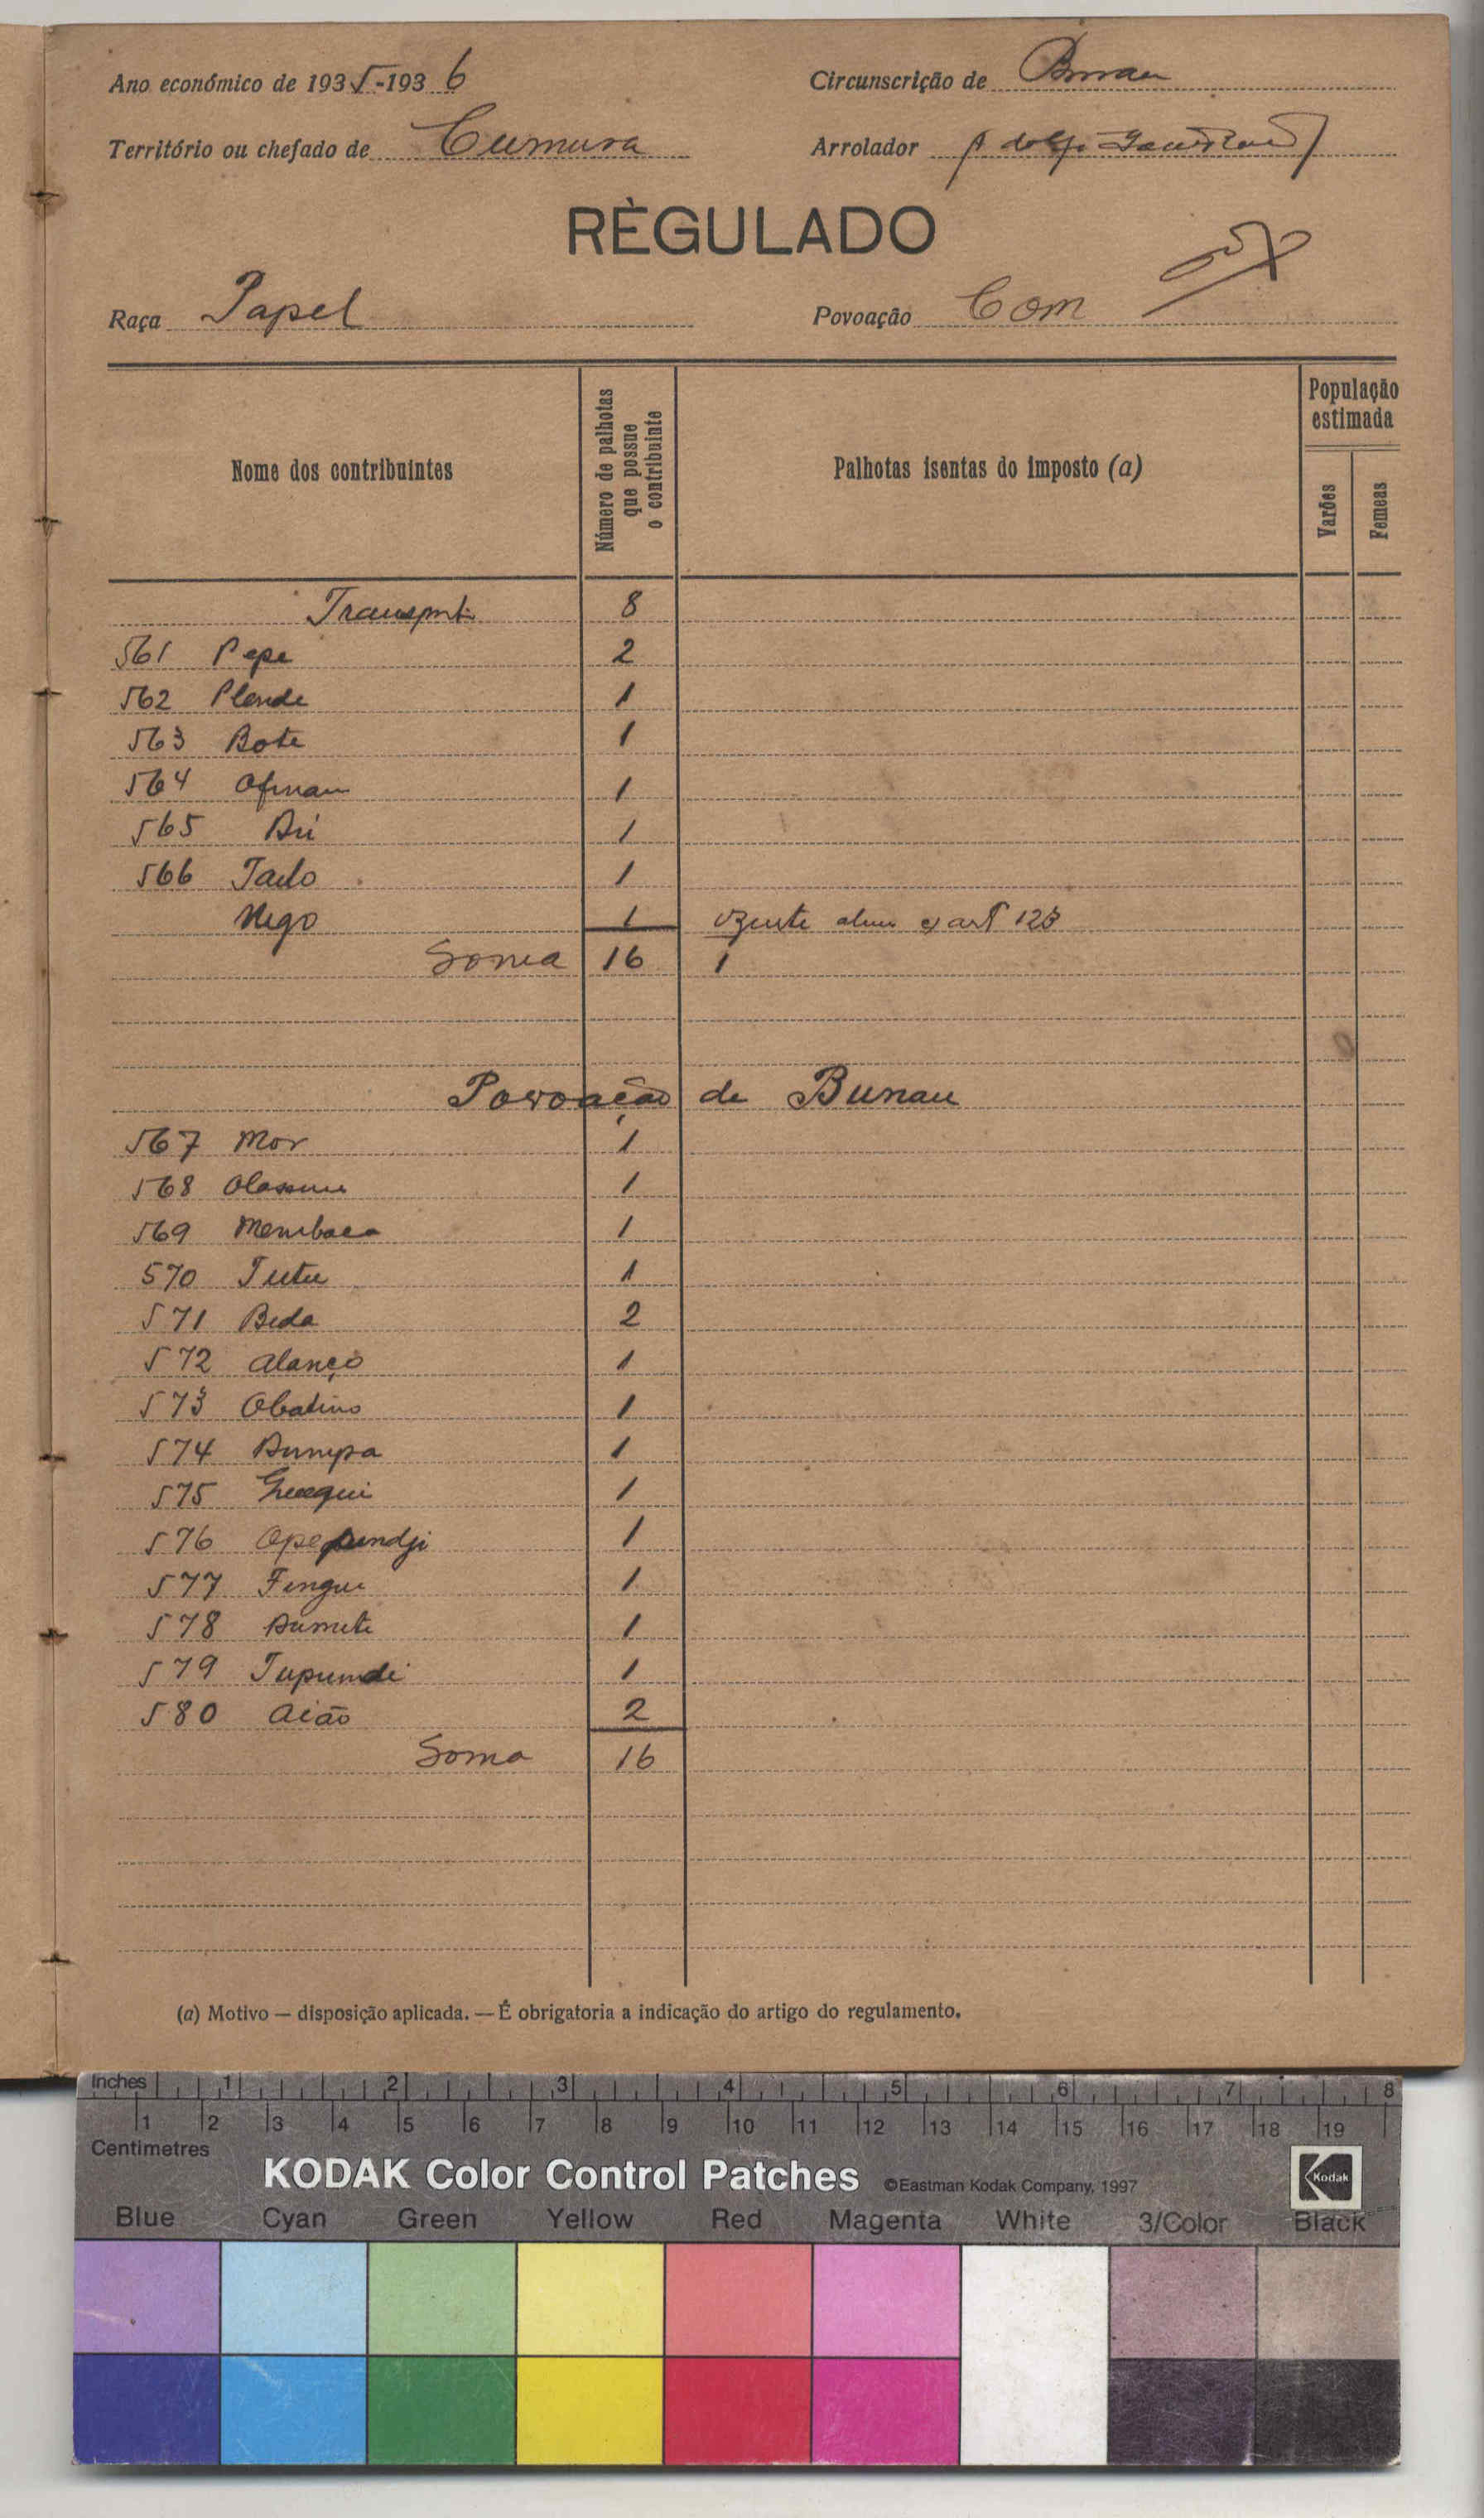 Ano económico de 1935-1936
Circunscrição de Bissau
Território ou chefado de Cumura
Arrolador Adolfo
RÈGULADO
Raça Papel
Povoação Com
Nome dos contribuintes
Número de palhotas que possue o contribuinte
Palhotas isentas do imposto (a)
População estimada
Varões
Femeas
Transporte 8
561 Pepe 2
562 Plende 1
563 Bote 1
564 1
565 1
566 1
Nego 1 art 123
Soma 16 1
Povoação de Bunau
567 Mor 1
568 1
569 1
570 Tutu 1
571 Beda 2
572 Alanço 1
573 Obatino 1
574 1
575 1
576 1
577 Fingue 1
578 1
579 Tupumdi 1
580 Aião 2
Soma 16
(a) Motivo — disposição aplicada. — É obrigatoria a indicação do artigo do regulamento.
Inches 1 2 3 4 5 6 7 8
1 2 3 4 5 6 7 8 9 10 11 12 13 14 15 16 17 18 19
Centimetres
KODAK Color Control Patches ©Eastman Kodak Company, 1997 Kodak
Blue Cyan Green Yellow Red Magenta White 3/Color Black